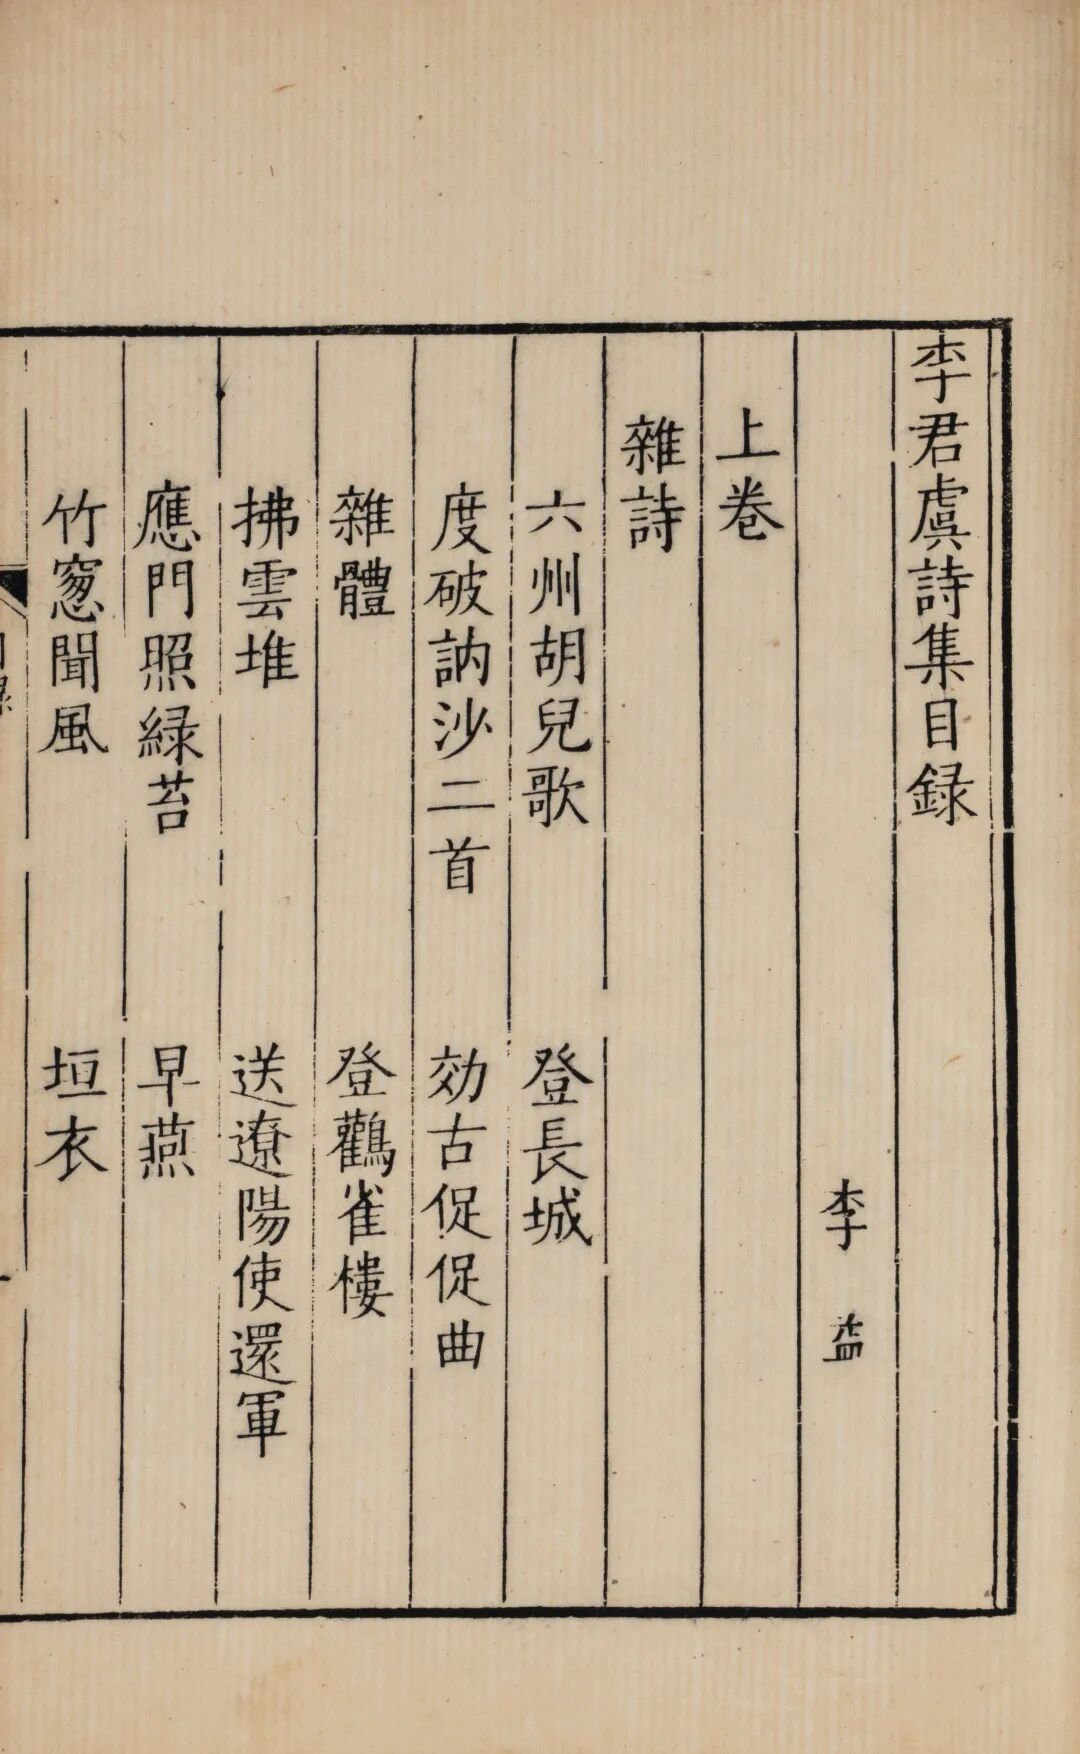 李君虞詩集目録
李益
上卷
雜詩
六州胡兒歌　登長城
度破訥沙二首　効古促促曲
雜體　登鸛雀樓
拂雲堆　送遼陽使還軍
應門照緑苔　早燕
竹窓聞風　垣衣